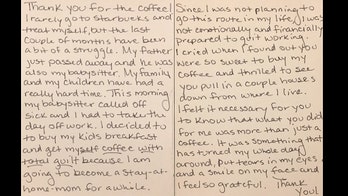 Thank you for the coffee!
I rarely go to Starbucks and
treat myself, but the last
couple of months have been
a bit of a struggle. My father
just passed away, and he
was also my babysitter. My family
and my children have had a
really hard time. This morning
my babysitter called off
sick and I had to take the
day off work. I decided to
to buy my kids breakfast
and get myself coffee with
total guilt because I am
going to become a stay-at
home-mom for a while.
Since I was not planning to
go this route in my life, I was
not emotionally and financially
prepared to quit working.
I cried when I found out you
were so sweet to buy my
coffee and thrilled to see
you pull in a couple houses
down from where I live.
I felt it necessary for you
to know that what you did
for me was more than just a
coffee. It was something that
has turned my whole day
around, put tears in my eyes
and a smile on my face and
I feel so grateful. Thank
you!